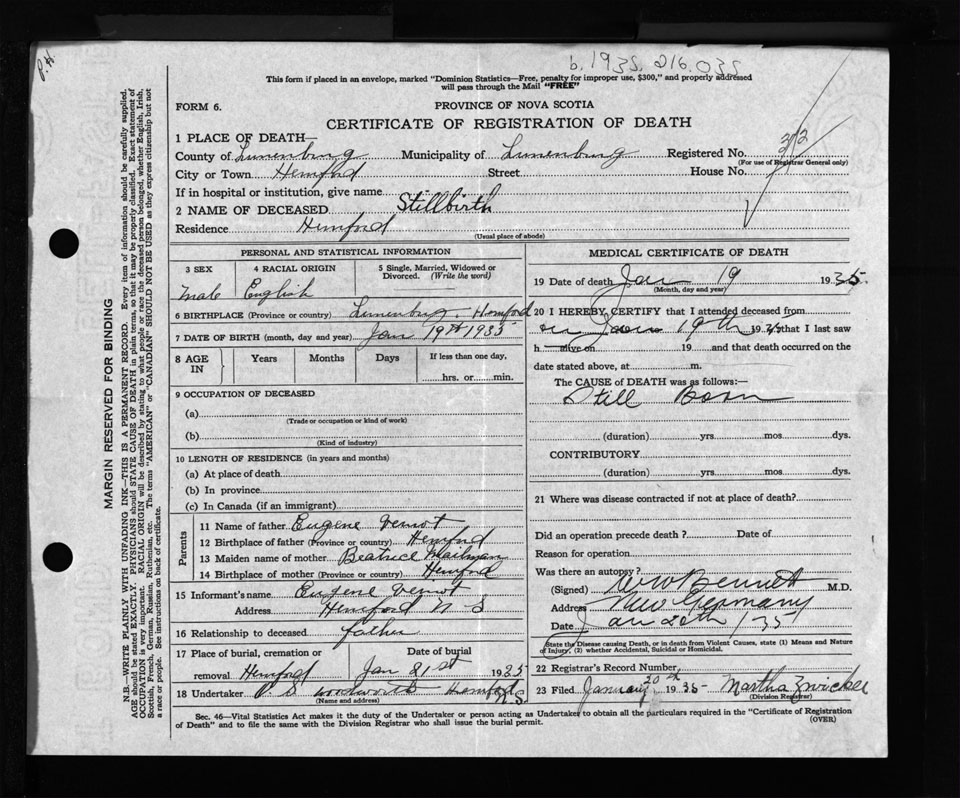 P.H.
b. 1935. 216.035
This form if placed in an envelope, marked "Dominion Statistics—Free, penalty for improper use, $300," and properly addressed
will pass through the Mail "FREE"
FORM 6.
PROVINCE OF NOVA SCOTIA
CERTIFICATE OF REGISTRATION OF DEATH
1 PLACE OF DEATH—
County of Lunenburg Municipality of Lunenburg Registered No. 32
(For use of Registrar General only)
City or Town Hemford Street House No.
If in hospital or institution, give name
2 NAME OF DECEASED Stillbirth
Residence Hemford
(Usual place of abode)
PERSONAL AND STATISTICAL INFORMATION
3 SEX 4 RACIAL ORIGIN 5 Single, Married, Widowed or Divorced. (Write the word)
Male English
6 BIRTHPLACE (Province or country) Lunenburg. Hemford
7 DATE OF BIRTH (month, day and year) Jan 19th 1935
8 AGE IN Years Months Days If less than one day,
hrs. or min.
9 OCCUPATION OF DECEASED
(a)
(Trade or occupation or kind of work)
(b)
(Kind of industry)
10 LENGTH OF RESIDENCE (in years and months)
(a) At place of death
(b) In province
(c) In Canada (if an immigrant)
Parents
11 Name of father Eugene Vernot
12 Birthplace of father (Province or country) Hemford
13 Maiden name of mother Beatrice Mailman
14 Birthplace of mother (Province or country) Hemford
15 Informant's name Eugene Vernot
Address Hemford N-S
16 Relationship to deceased father
17 Place of burial, cremation or Date of burial
removal Hemford Jan 21st 1935
18 Undertaker Woodworth Hemford N.S.
(Name and address)
MEDICAL CERTIFICATE OF DEATH
19 Date of death Jan 19 1935
(Month, day and year)
20 I HEREBY CERTIFY that I attended deceased from
on Jan 19th 1935 that I last saw
h alive on 19 and that death occurred on the
date stated above, at m.
The CAUSE OF DEATH was as follows:—
Still Born
(duration) yrs mos dys.
CONTRIBUTORY
(duration) yrs mos dys.
21 Where was disease contracted if not at place of death?
Did an operation precede death? Date of
Reason for operation
Was there an autopsy?
(Signed) Bennett M.D.
Address New Germany
Date Jan 20th /35
State the Disease causing Death, or in death from Violent Causes, state (1) Means and Nature
of Injury, (2) whether Accidental, Suicidal or Homicidal.
22 Registrar's Record Number
23 Filed January 20th 1935 Martha Zwicker
(Division Registrar)
Sec. 46—Vital Statistics Act makes it the duty of the Undertaker or person acting as Undertaker to obtain all the particulars required in the "Certificate of Registration
of Death" and to file the same with the Division Registrar who shall issue the burial permit. (OVER)
MARGIN RESERVED FOR BINDING
N.B.—WRITE PLAINLY WITH UNFADING INK—THIS IS A PERMANENT RECORD. Every item of information should be carefully supplied.
AGE should be stated EXACTLY. PHYSICIANS should STATE CAUSE OF DEATH in plain terms, so that it may be properly classified. Exact statement of
OCCUPATION is very important. RACIAL ORIGIN will be described by stating to what people or race the deceased person belonged, whether English, Irish,
Scottish, French, German, Russian, Ruthenian, etc. The terms "AMERICAN" or "CANADIAN" SHOULD NOT BE USED as they express citizenship but not
a race or people. See instructions on back of certificate.